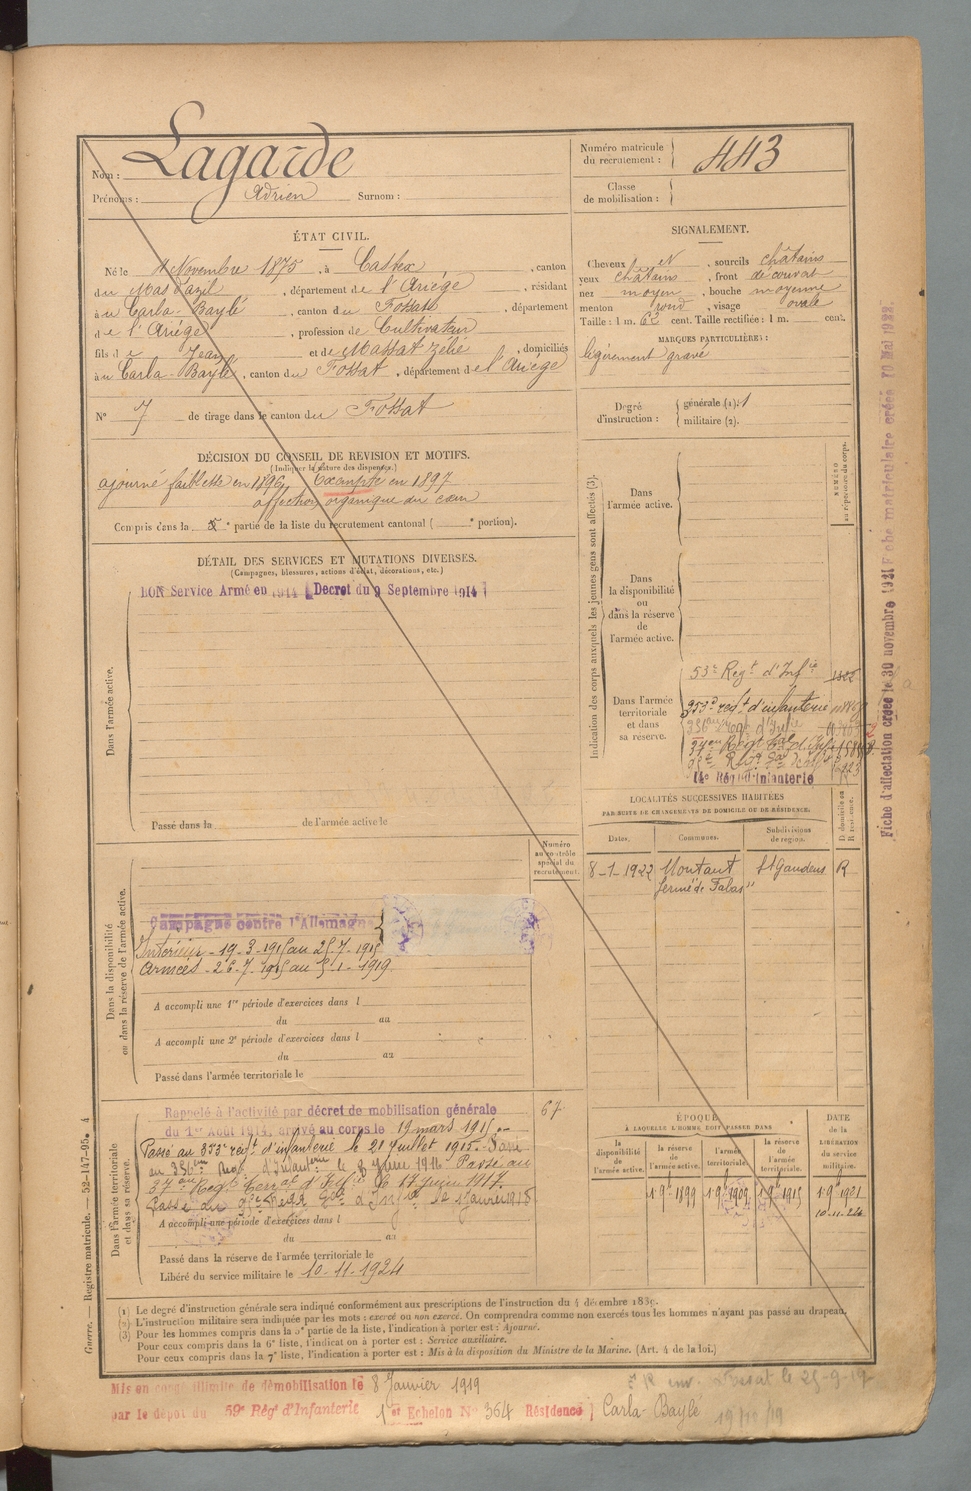 Nom : Lagarde
Prénoms : Adrien Surnom :
Numéro matricule du recrutement : 443
Classe de mobilisation :
ÉTAT CIVIL.
Né le 4 Novembre 1875, à Castex, canton
du Mas d'azil, département de l'Ariége, résidant
à u Carla-Baylé, canton du Fossat, département
de l'Ariége, profession de Cultivateur
fils de Jean et de Massat Zélie, domiciliés
à u Carla-Baylé, canton du Fossat, département de l'Ariége
N° 7 de tirage dans le canton du Fossat
SIGNALEMENT.
Cheveux et, sourcils châtains
yeux châtains, front découvert
nez moyen, bouche moyenne
menton rond, visage ovale
Taille : 1 m. 62 cent. Taille rectifiée : 1 m. cent.
MARQUES PARTICULIÈRES :
légèrement gravé
Degré d'instruction : générale (1) : 1
militaire (2).
DÉCISION DU CONSEIL DE REVISION ET MOTIFS.
(Indiquer la nature des dispenses.)
ajourné faiblesse en 1896, Exempté en 1897
affection organique du cœur
Compris dans la e partie de la liste du recrutement cantonal ( e portion).
DÉTAIL DES SERVICES ET MUTATIONS DIVERSES.
(Campagnes, blessures, actions d'éclat, décorations, etc.)
Dans l'armée active.
BON Service Armé en 1914 (Décret du 9 Septembre 1914)
Passé dans la de l'armée active le
Indication des corps auxquels les jeunes gens sont affectés (3).
NUMÉRO au répertoire du corps.
Dans l'armée active.
Dans la disponibilité ou dans la réserve de l'armée active.
Dans l'armée territoriale et dans sa réserve.
53e Regt d'Infie
353e regt d'infanterie
14e Régt Infanterie
LOCALITÉS SUCCESSIVES HABITÉES
PAR SUITE DE CHANGEMENTS DE DOMICILE OU DE RÉSIDENCE.
Dates. Communes. Subdivisions de région. D. domicile ou R. résidence.
8-1-1922 Montaut St Gaudens R
Numéro au contrôle spécial du recrutement.
Dans la disponibilité ou dans la réserve de l'armée active.
Campagne contre l'Allemagne
Intérieur - 19-3-1915 au 25-7-1915
Armées - 26-7-1915 au 5-1-1919
A accompli une 1re période d'exercices dans l
du au
A accompli une 2e période d'exercices dans l
du au
Passé dans l'armée territoriale le
Dans l'armée territoriale et dans sa réserve.
Rappelé à l'activité par décret de mobilisation générale 67
du 1er Août 1914, arrivé au corps le 19 mars 1915
Passé au 353e regt d'infanterie le 21 Juillet 1915. Passé
Passé au
37e Regt Terral d'Infie le 17 Juin 1917.
A accompli une période d'exercices dans l
du au
Passé dans la réserve de l'armée territoriale le
Libéré du service militaire le 10-11-1924
ÉPOQUE
À LAQUELLE L'HOMME DOIT PASSER DANS
la disponibilité de l'armée active. la réserve de l'armée active. l'armée territoriale. la réserve de l'armée territoriale.
DATE de la LIBÉRATION du service militaire.
1 9e 1899 1 9e 1909 1 9e 1915 1 9e 1921
10-11-24
(1) Le degré d'instruction générale sera indiqué conformément aux prescriptions de l'instruction du 4 décembre 1889.
(2) L'instruction militaire sera indiquée par les mots : exercé ou non exercé. On comprendra comme non exercés tous les hommes n'ayant pas passé au drapeau.
(3) Pour les hommes compris dans la 5e partie de la liste, l'indication à porter est : Ajourné.
Pour ceux compris dans la 6e liste, l'indication à porter est : Service auxiliaire.
Pour ceux compris dans la 7e liste, l'indication à porter est : Mis à la disposition du Ministre de la Marine. (Art. 4 de la loi.)
Mis en congé illimité de démobilisation le 8 Janvier 1919
par le dépôt du 59e Rég d'Infanterie 1er Echelon No 364 Résidence Carla-Baylé
19/10/19
Guerre. — Registre matricule. — 52-147-95. 4
Fiche d'affectation créée le 30 novembre 1921 Fiche matriculaire créée 10 Mai 1922.